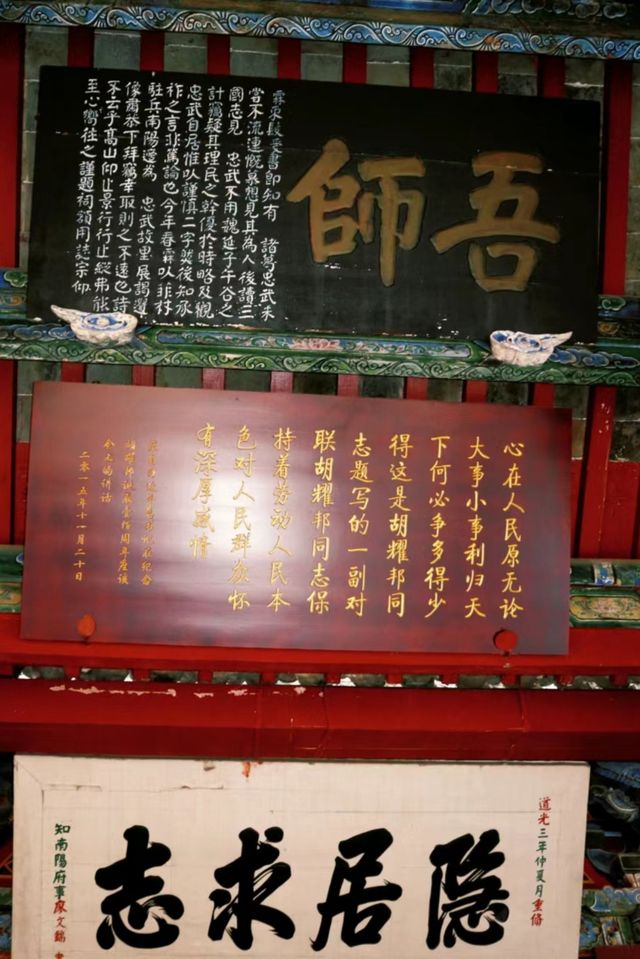 吾師
霖束髮受書即知有 諸葛忠武未
嘗不流連慨慕想見其為人後讀三
國志見 忠武不用魏延子午谷之
計竊疑其理民之幹優於時略及觀
忠武自居惟以謹慎二字然後知承
祚之言非篤論也今年春霖以菲材
駐兵南陽邊為 忠武故里展謁遺
像肅恭下拜竊幸取則之不遠也詩
不云乎高山仰止景行行止縱弗能
至心嚮往之謹題祠額用誌宗仰
心在人民原无论
大事小事利归天
下何必争多得少
得这是胡耀邦同
志题写的一副对
联胡耀邦同志保
持着劳动人民本
色对人民群众怀
有深厚感情
纪念
胡耀邦诞辰壹佰周年座谈
会上的讲话
二零一五年十一月二十日
道光三年仲夏月重脩
隐居求志
知南陽府事廖文錦